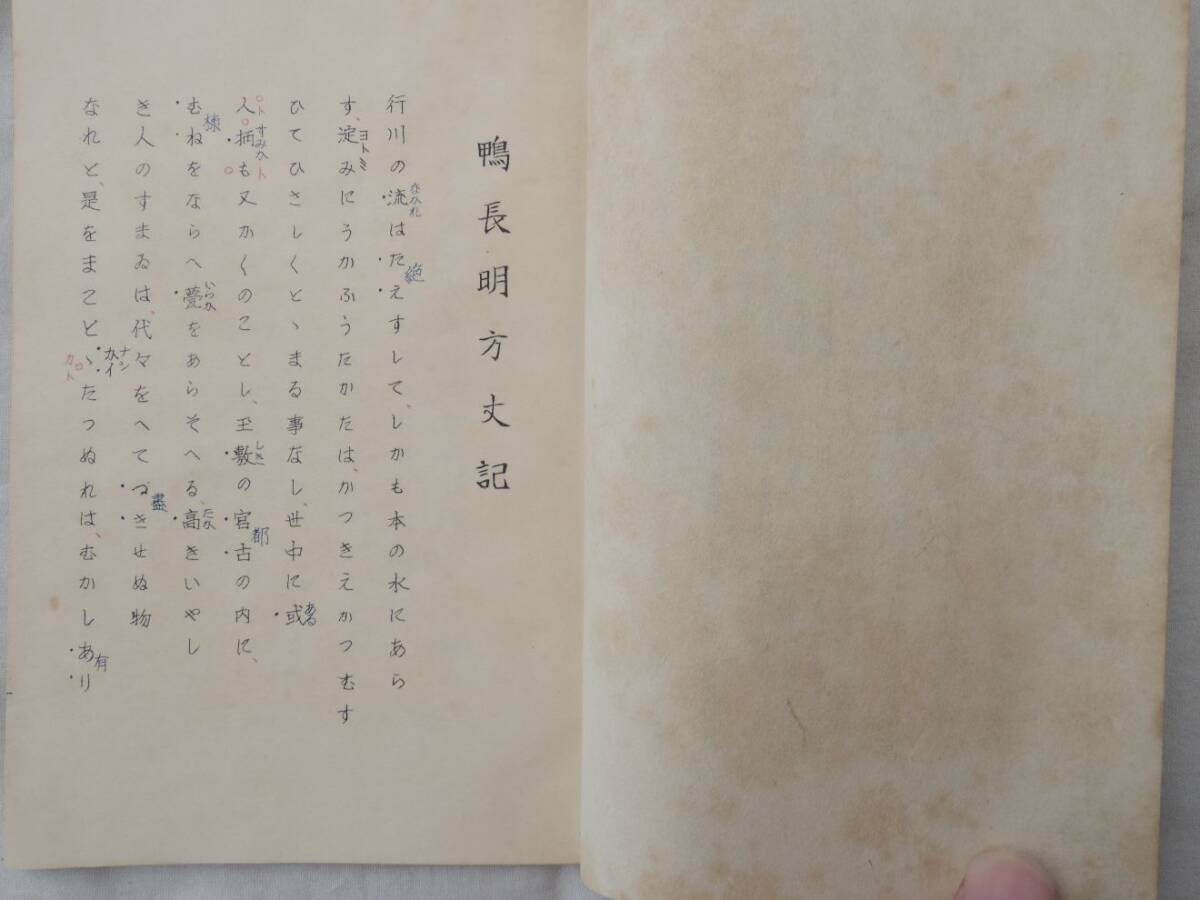 鴨長明方丈記
行川の流はたえすして、しかも本の水にあら
す、淀みにうかふうたかたは、かつきえかつむす
ひてひさしくとゝまる事なし、世中に或
人栖も又かくのことし、玉敷の宮古の内に、
むねをならへ甍をあらそへる、高きいやし
き人のすまゐは、代々をへてづきせぬ物
なれと、是をまことゝたつぬれは、むかしあり
なかれ
絶
ヨトミ
ある
すみか
しき
都
棟
いらか
たか
盡
ナシ
カイ
有